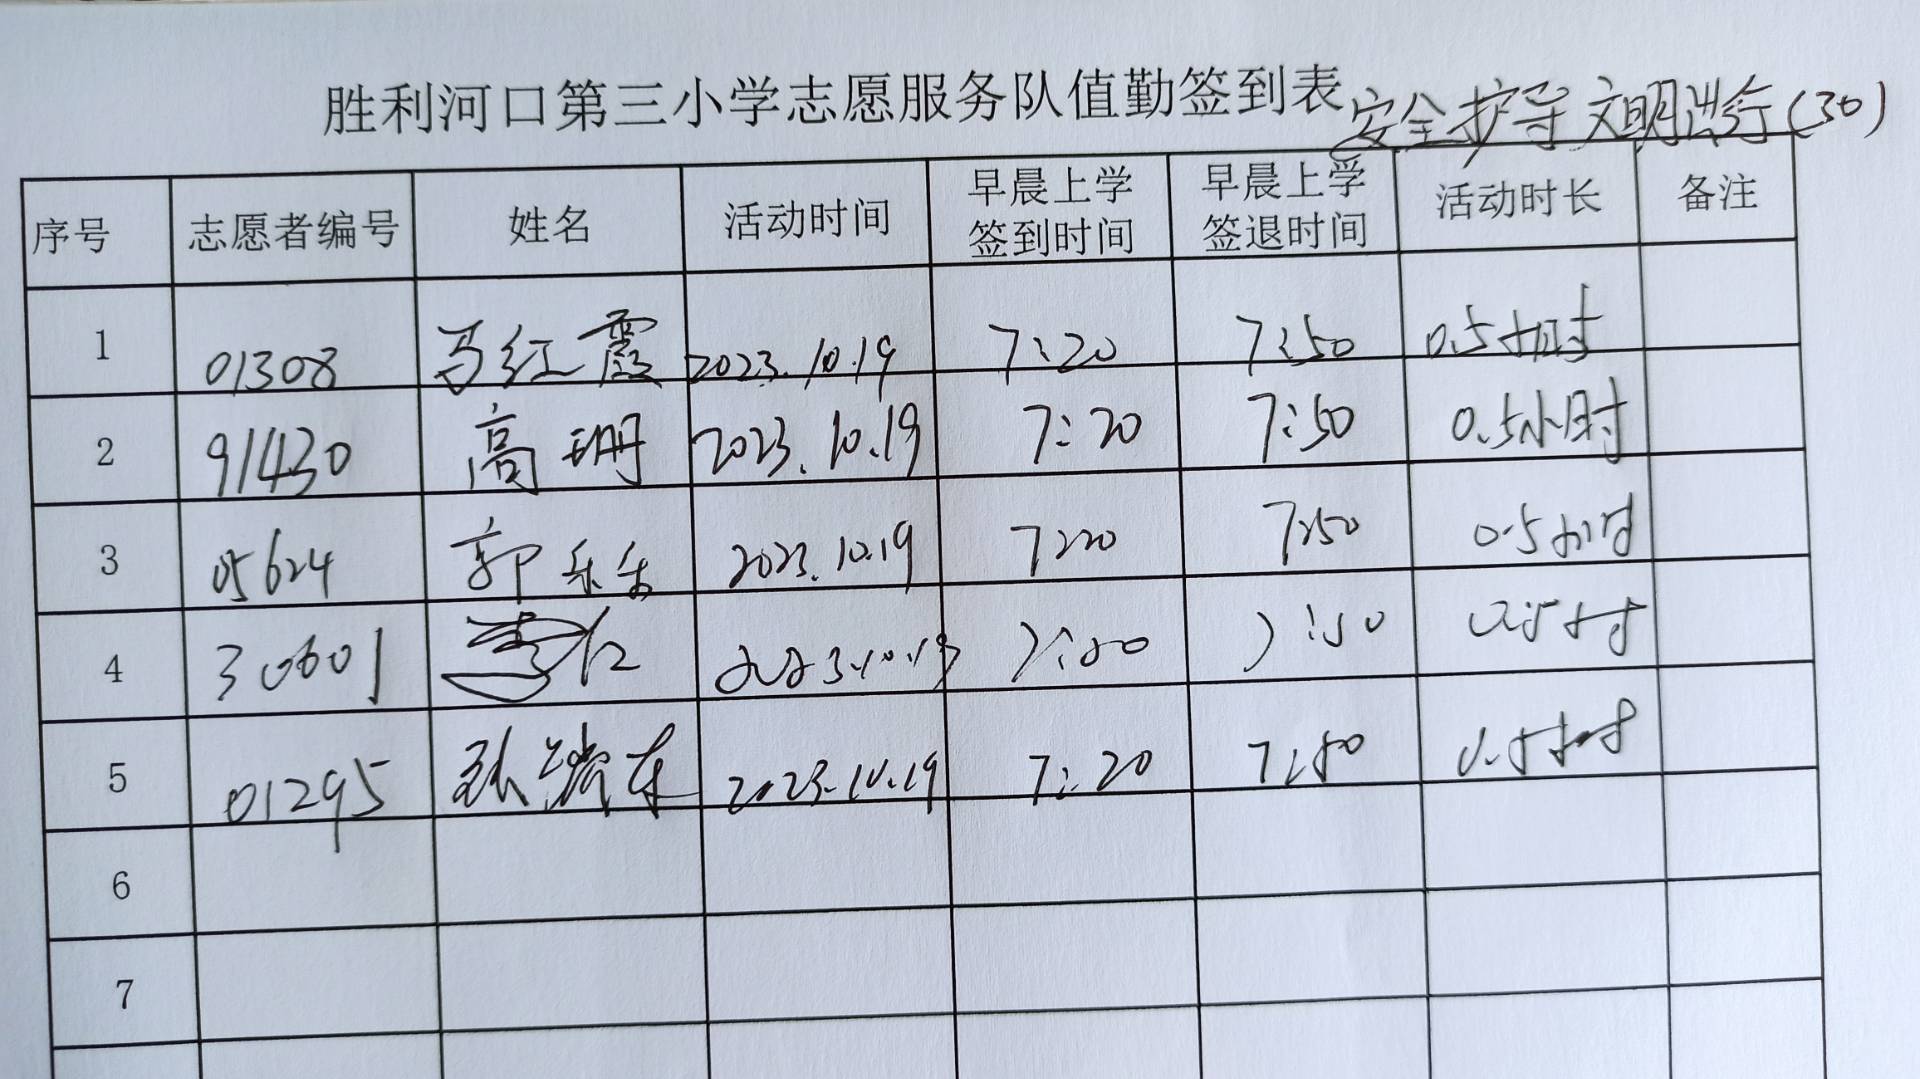 胜利河口第三小学志愿服务队值勤签到表 安全护导 文明出行(30)
序号 志愿者编号 姓名 活动时间 早晨上学签到时间 早晨上学签退时间 活动时长 备注
1 01308 马红霞 2023.10.19 7:20 7:50 0.5小时
2 91430 高珊 2023.10.19 7:20 7:50 0.5小时
3 05624 郭乐乐 2023.10.19 7:20 7:50 0.5小时
4 30601 2023.10.19 7:20 7:50 0.5小时
5 01295 2023.10.19 7:20 7:50 0.5小时
6
7